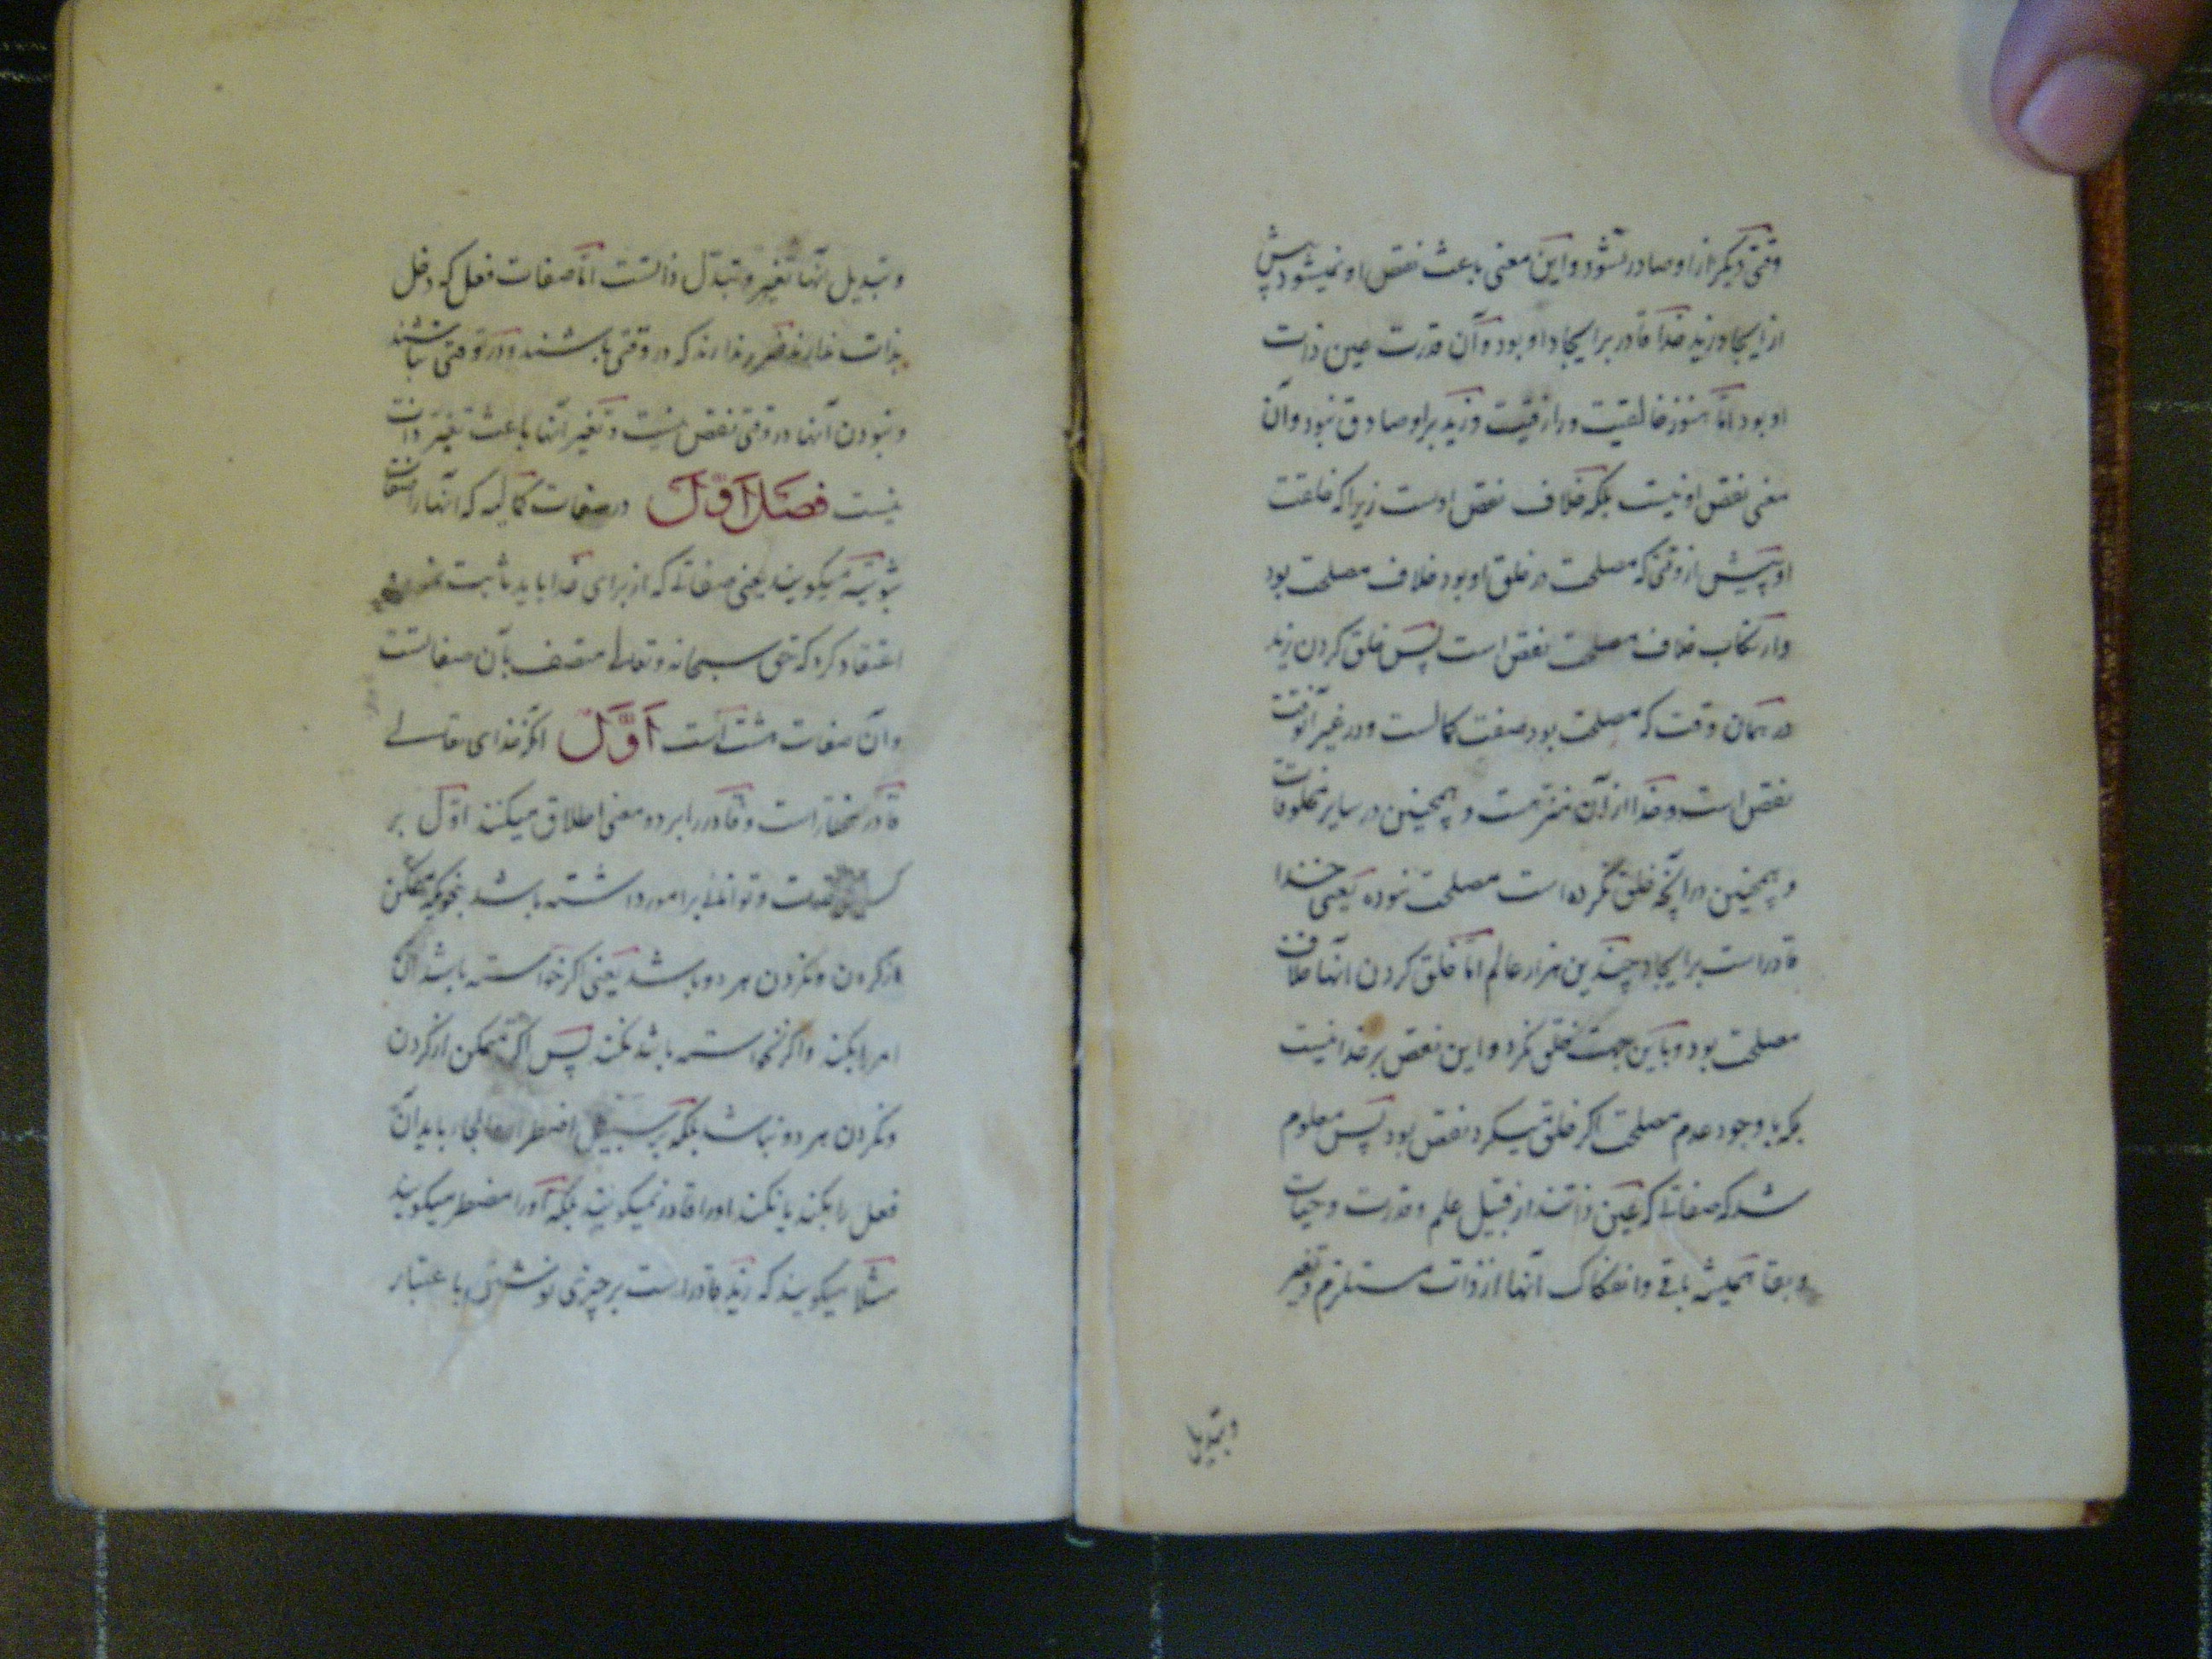 وقتی دیگر از او صادر نشود و این معنی باعث نقص او نمیشود پیش
از ایجاد زید خدا قادر بر ایجاد او بود و آن قدرت عین ذات
او بود امّا هنوز خالقیت و رازقیّت زید بر او صادق نبود و آن
معنی نقص او نیست بلکه خلاف نقص اوست زیرا که خلقت
او پیش از وقتی که مصلحت در خلق او بود خلاف مصلحت بود
و ارتکاب خلاف مصلحت نقص است پس خلق کردن زید
در همان وقت که مصلحت بود صفت کمالست و در غیر آنوقت
نقص است و خدا از آن منزه است و همچنین در سایر مخلوقات
و همچنین در آنچه خلق نکرده است مصلحت نبوده یعنی خدا
قادر است بر ایجاد چندین هزار عالم امّا خلق کردن آنها خلاف
مصلحت بود و باین جهت خلق نکرد و این نقص بر خدا نیست
بلکه با وجود عدم مصلحت اکر خلق میکرد نقص بود پس معلوم
شد که صفاتی که عین ذاتند از قبیل علم و قدرت و حیات
و بقا همیشه باقی و انفکاک آنها از ذات مستلزم تغیر
و تبدیل
و تبدیل آنها تغییر و تبدّل ذاتست امّا صفات فعل که دخل
بذات ندارند ضرر ندارند که در وقتی باشند و در وقتی نباشند
و نبودن آنها در وقتی نقص نیست و تغیر آنها باعث تغیّر ذات
نیست فصل اوّل در صفات کمالیه که آنها را صفات
ثبوتیّه میکویند یعنی صفاتی که از برای خدا باید ثابت نمود
اعتقاد کرد که حق سبحانه و تعالی متصف بآن صفاتست
و آن صفات هشت است اوّل آنکه خدای تعالی
قادر مختار است و قادر را بر دو معنی اطلاق میکنند اوّل بر
کسی که قدرت و توانائی بر امور داشته باشد بنحویکه متمکن
از کردن و نکردن هر دو باشد یعنی اکر خواسته باشد آن
امر را بکند و اکر نخواسته باشد نکند پس اکر متمکن از کردن
و نکردن هر دو نباشد بلکه بر سبیل اضطرار و الجاء باید آن
فعل را بکند یا نکند او را قادر نمیکویند بلکه او را مضطر میکویند
مثلا میکویند که زید قادر است بر چیزی نوشتن باعتبار